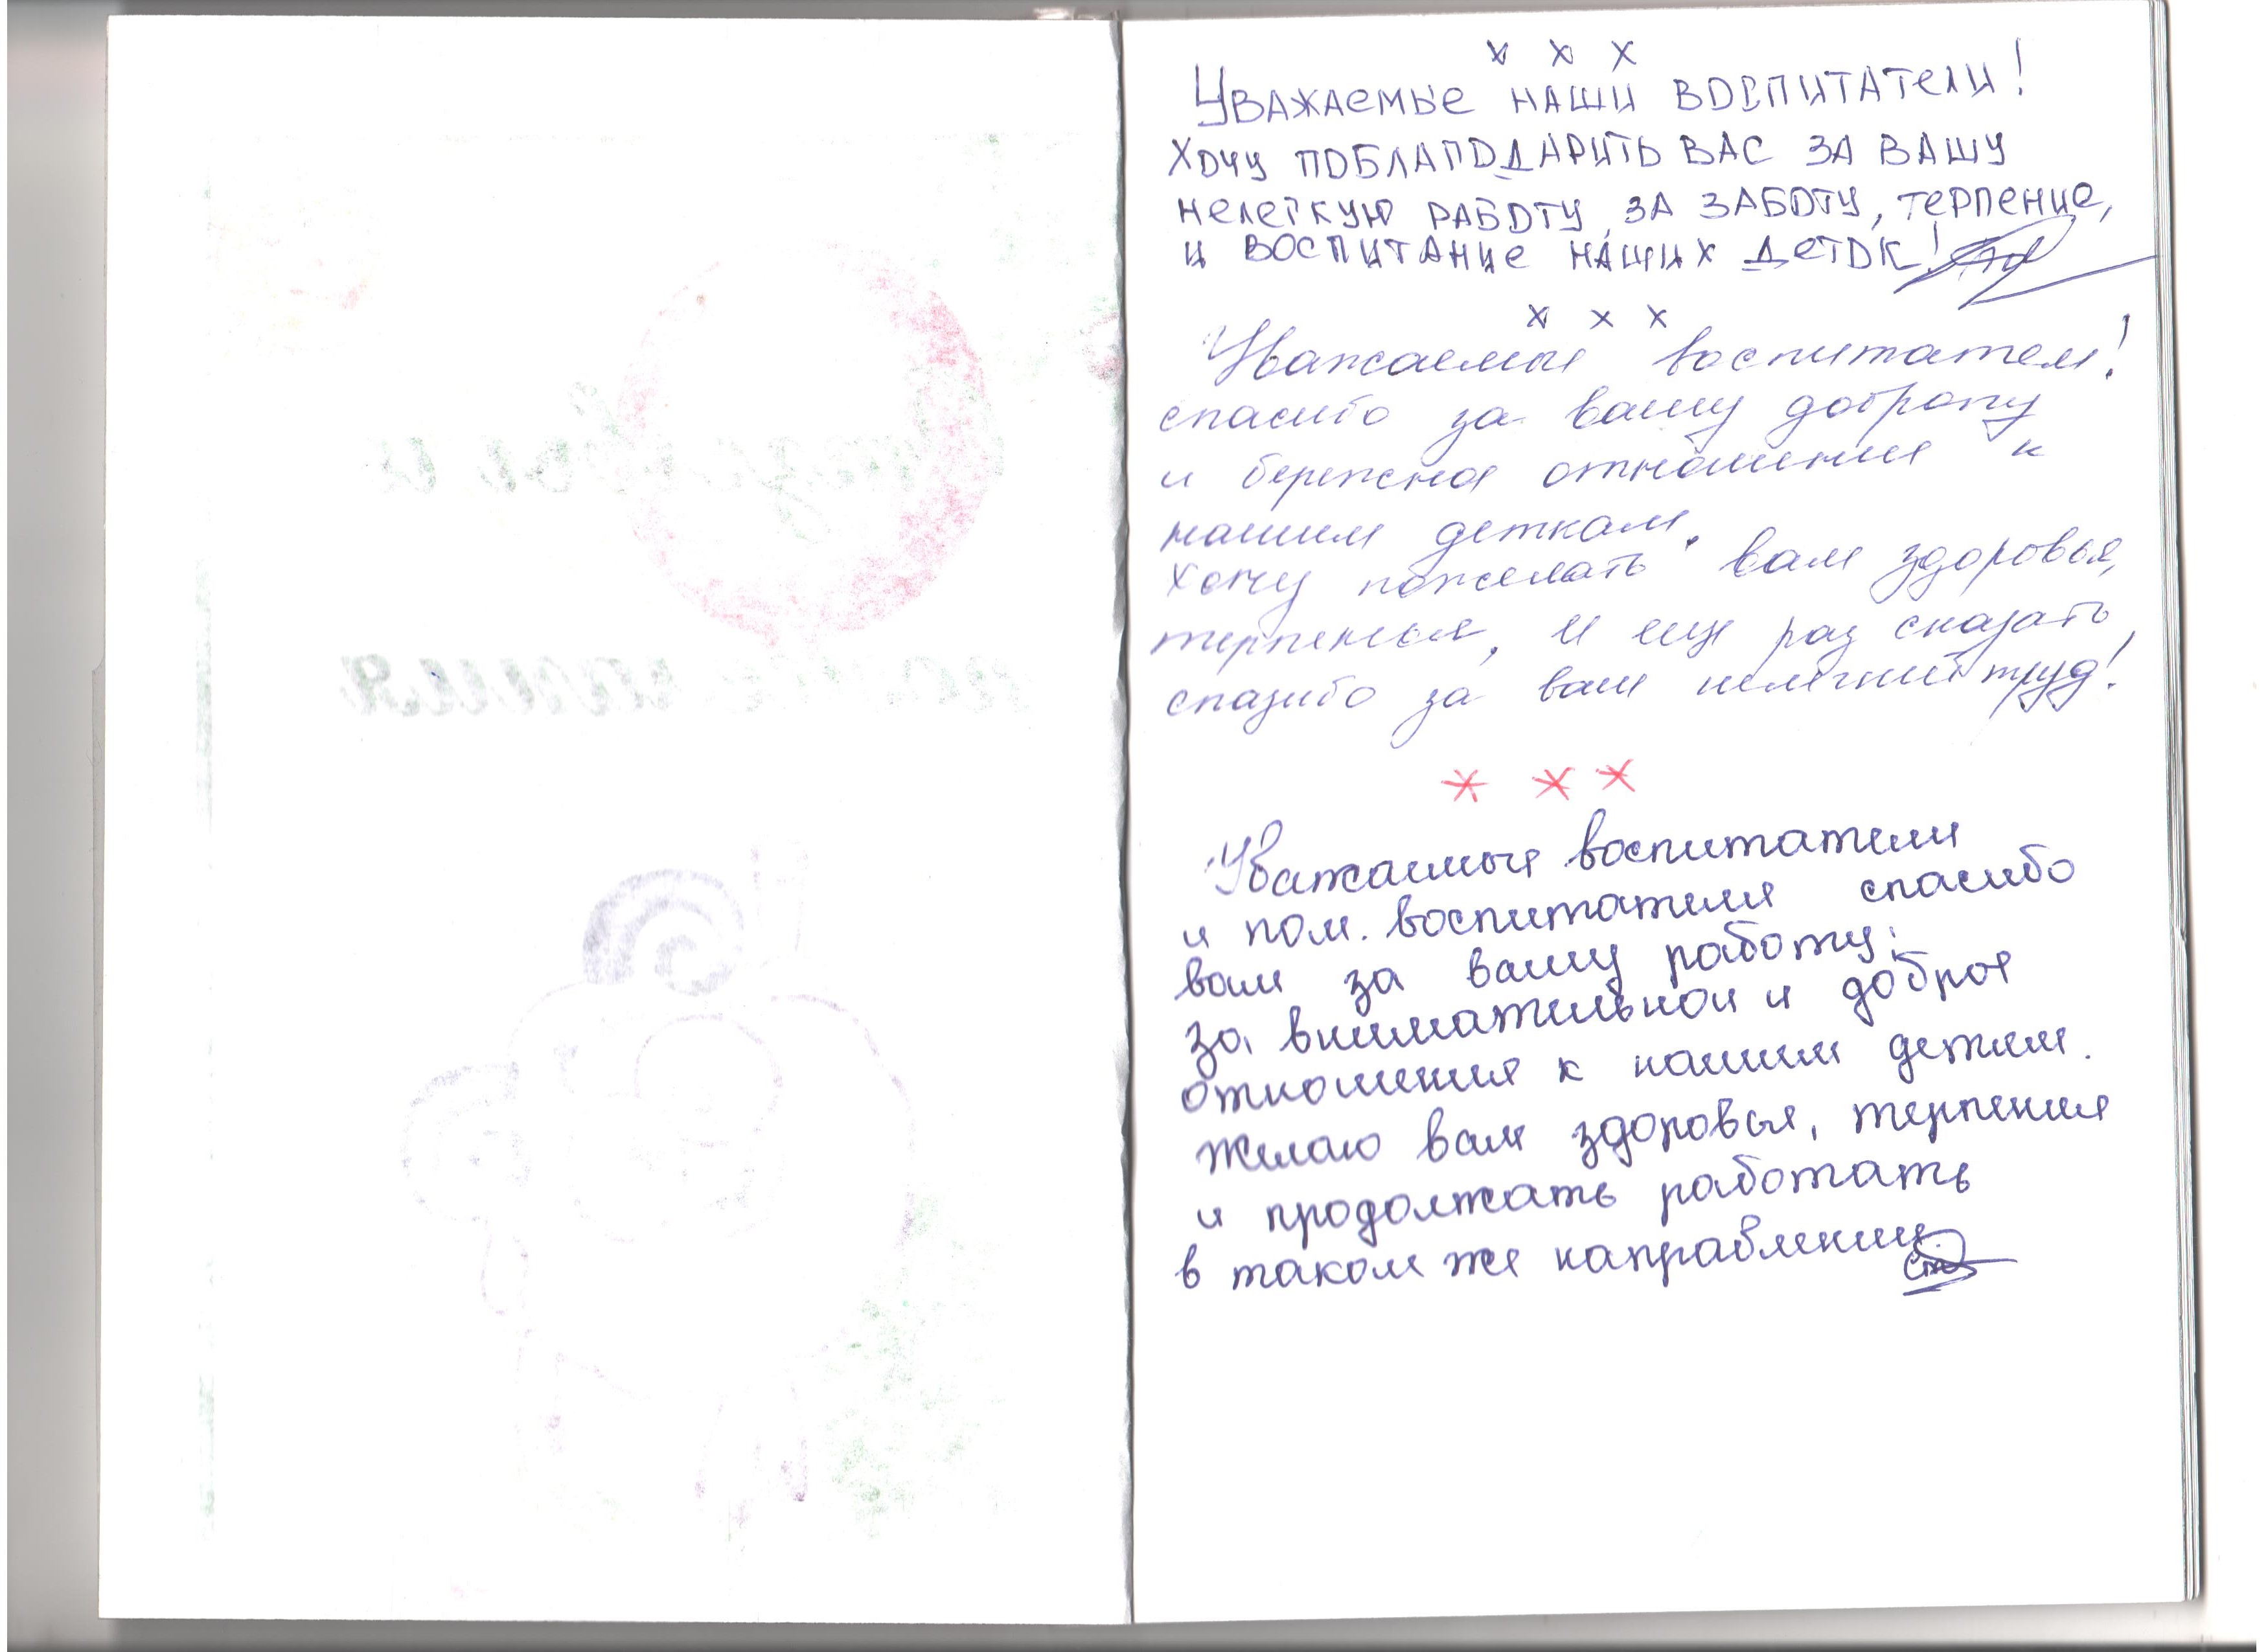 х х х
Уважаемые наши воспитатели!
Хочу поблагодарить вас за вашу
нелегкую работу, за заботу, терпение,
и воспитание наших деток!
х х х
Уважаемые воспитатели!
спасибо за вашу доброту
и бережное отношение к
нашим деткам.
Хочу пожелать вам здоровья,
терпения, и еще раз сказать
спазибо за ваш нелегкий труд!
* * *
Уважаемые воспитатели
и пом. воспитателя спасибо
вам за вашу работу,
за внимательной и доброе
отношения к нашим детям.
Желаю вам здоровья, терпения
и продолжать работать
в таком же направлении.